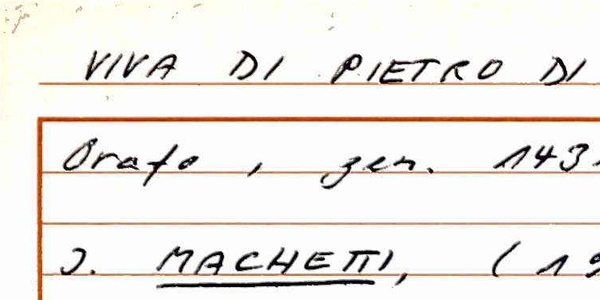 VIVA DI PIETRO DI
Orafo, gen. 143
J. MACHETTI, (19